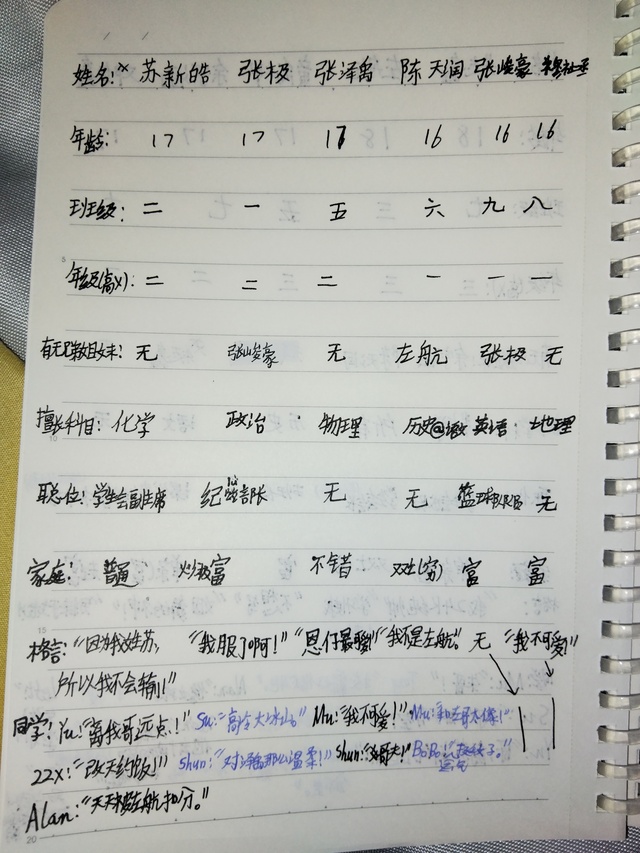 姓名: 苏新皓 张极 张泽禹 陈天润 张峻豪
年龄: 17 17 16 16 16
班级: 二 一 五 六 九 八
年级(高X): 二 二 二 一 一 一
有无兄弟姐妹: 无 张峻豪 无 左航 张极 无
擅长科目: 化学 政治 物理 历史 英语 地理
职位: 学生会副主席 纪 部长 无 无 篮球队队员 无
家庭: 普通 富 不错 (穷) 富 富
格言: "因为我姓苏, "我服了啊!" "恩仔最 !" "我不是左航。 无 "我不可爱!"
所以我不会输!"
同学: Yu: "离我哥远点!" Su: "高冷大冰山。 Mu: "我不可爱!" Mu:
ZZX: "改天约饭!" Shun: "对 那么温柔!" Shun: BoBo:
Alan: "天天被左航扣分。"